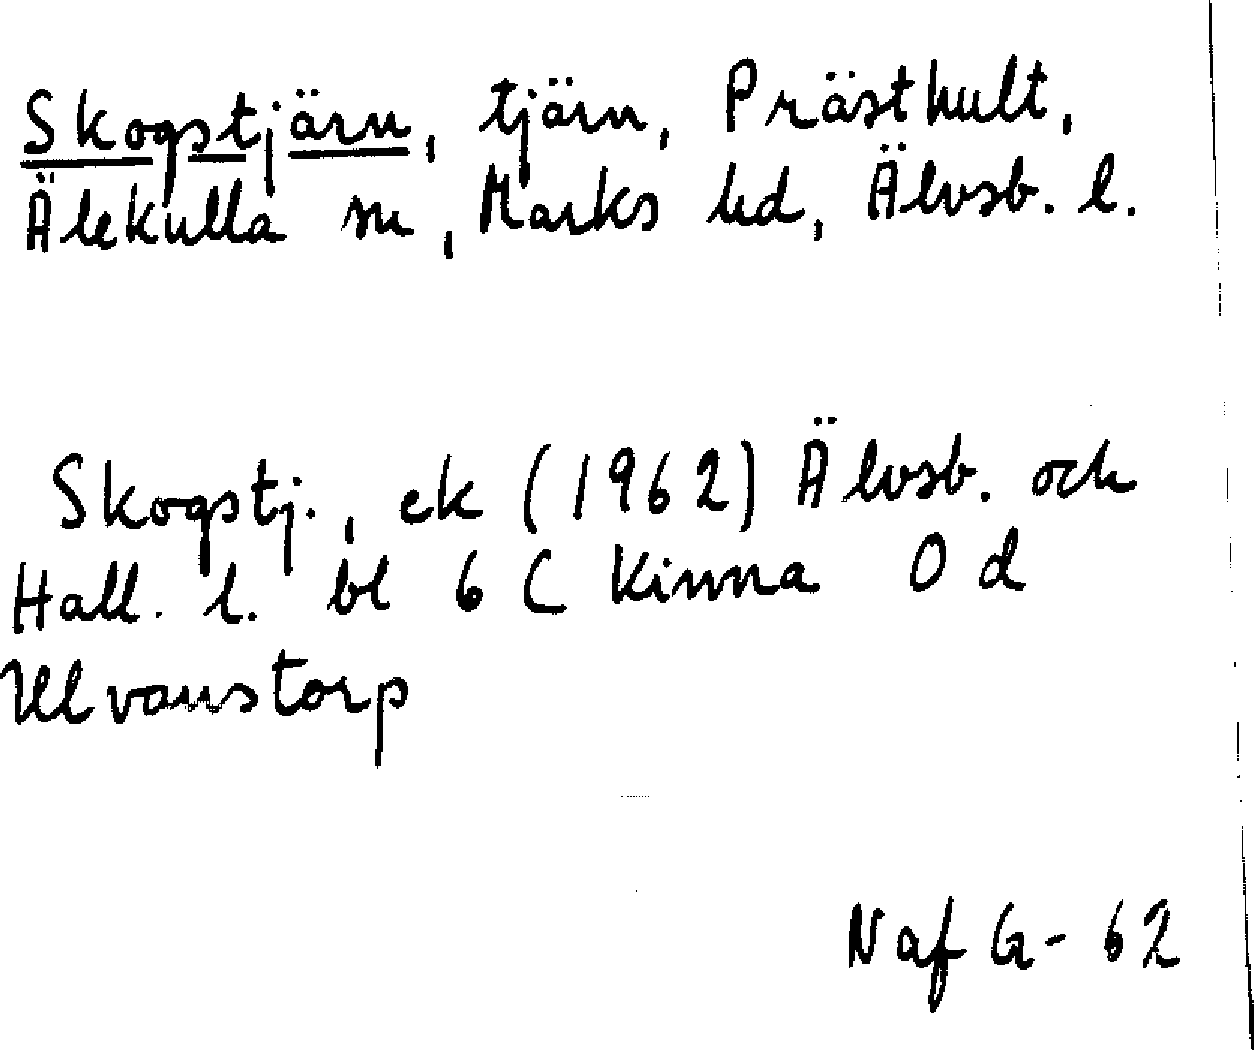 Skogstjärn, tjärn, Prästhult,
Älekulla sn, Marks hd, Älvsb. l.
Skogstj., ek (1962) Älvsb. och
Hall. l. bl 6 C Kinna 0 d
Ulvanstorp
Naf G-62